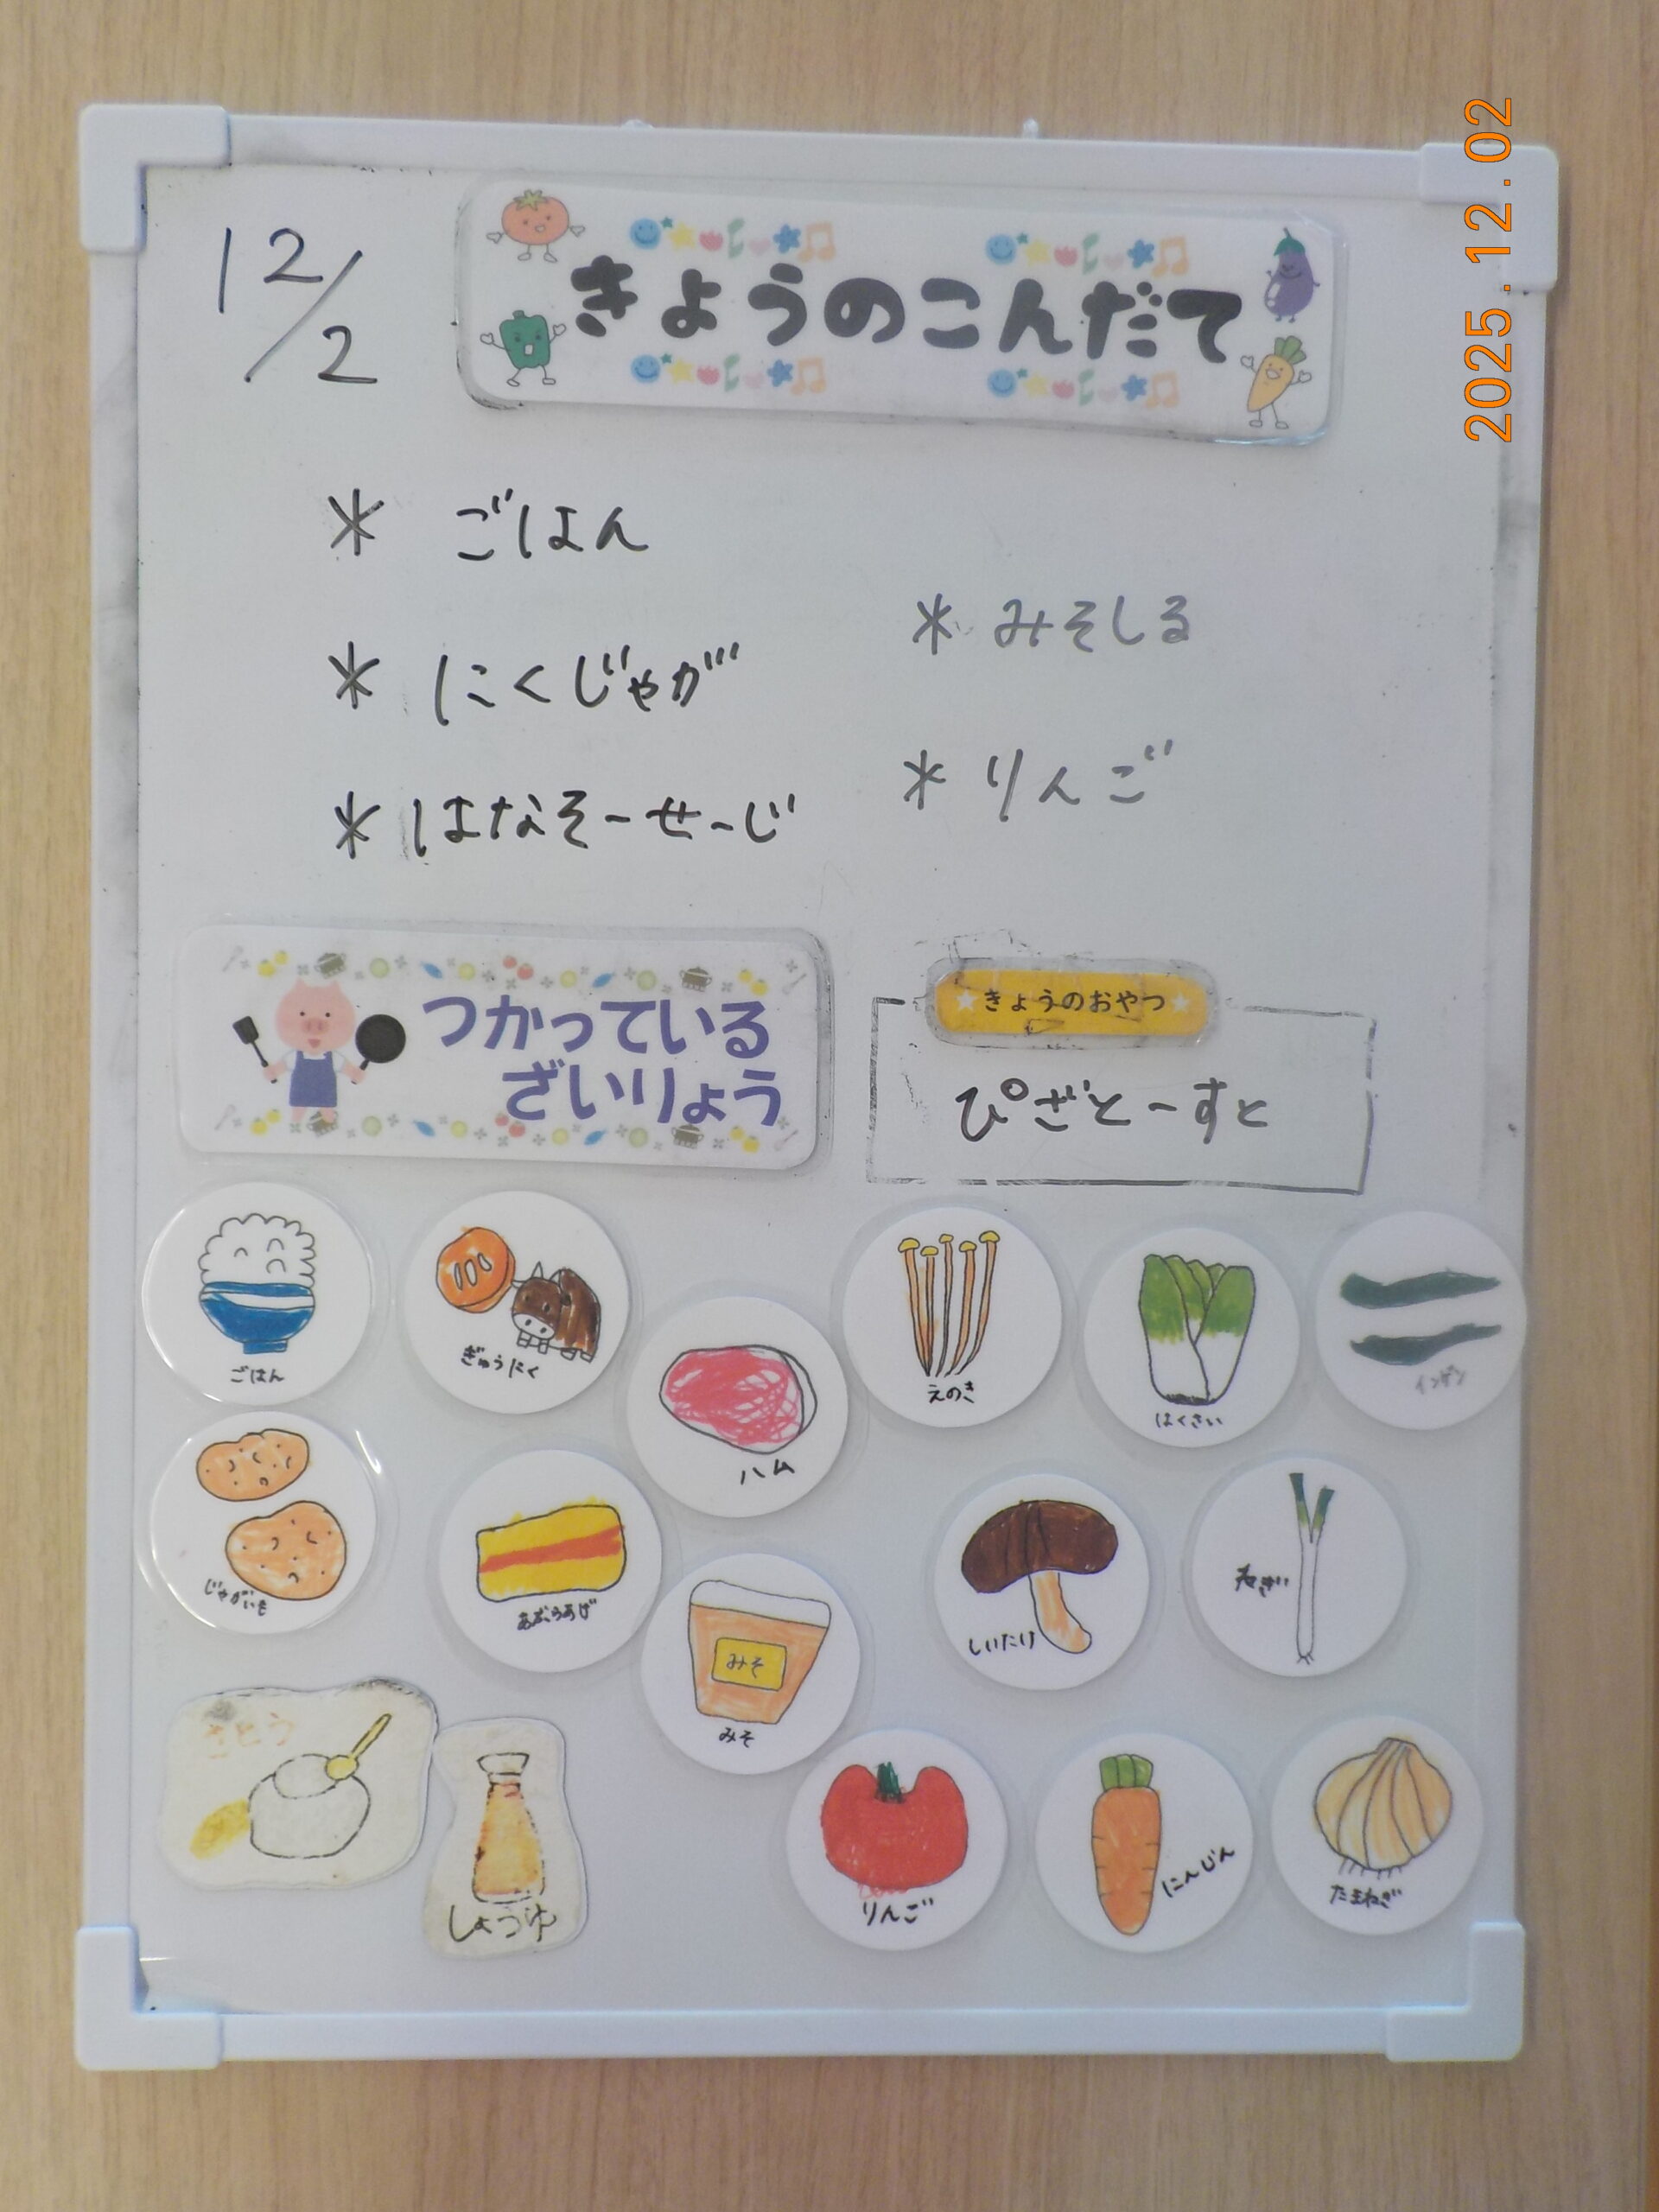 2025.12.02
12/2
きょうのこんだて
* ごはん
* にくじゃが
* はなそーせーじ
* みそしる
* りんご
つかっている
ざいりょう
きょうのおやつ
ぴざとーすと
ごはん
ぎゅうにく
ハム
えのき
はくさい
インゲン
じゃがいも
あぶらあげ
みそ
みそ
しいたけ
ねぎ
さとう
しょうゆ
りんご
にんじん
たまねぎ